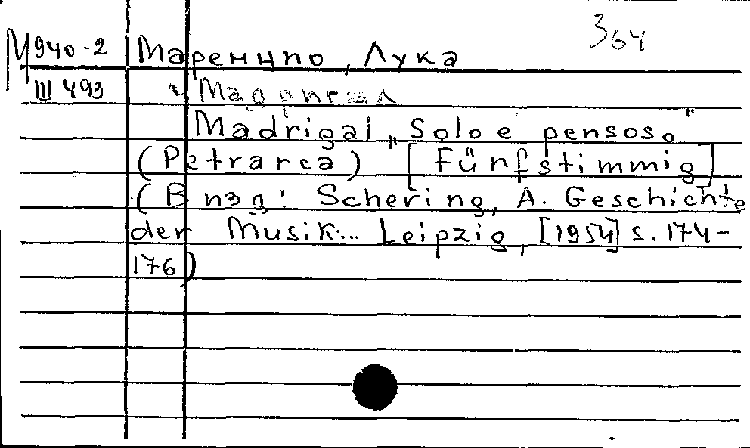 364
М940-2 Маренцио, Лука
III 493 "Мадригал
Madrigal „Solo e pensoso"
(Petrarca) [Fünfstimmig]
(В изд: Schering, A. Geschichte
der Musik... Leipzig, [1954] s. 174-
176)